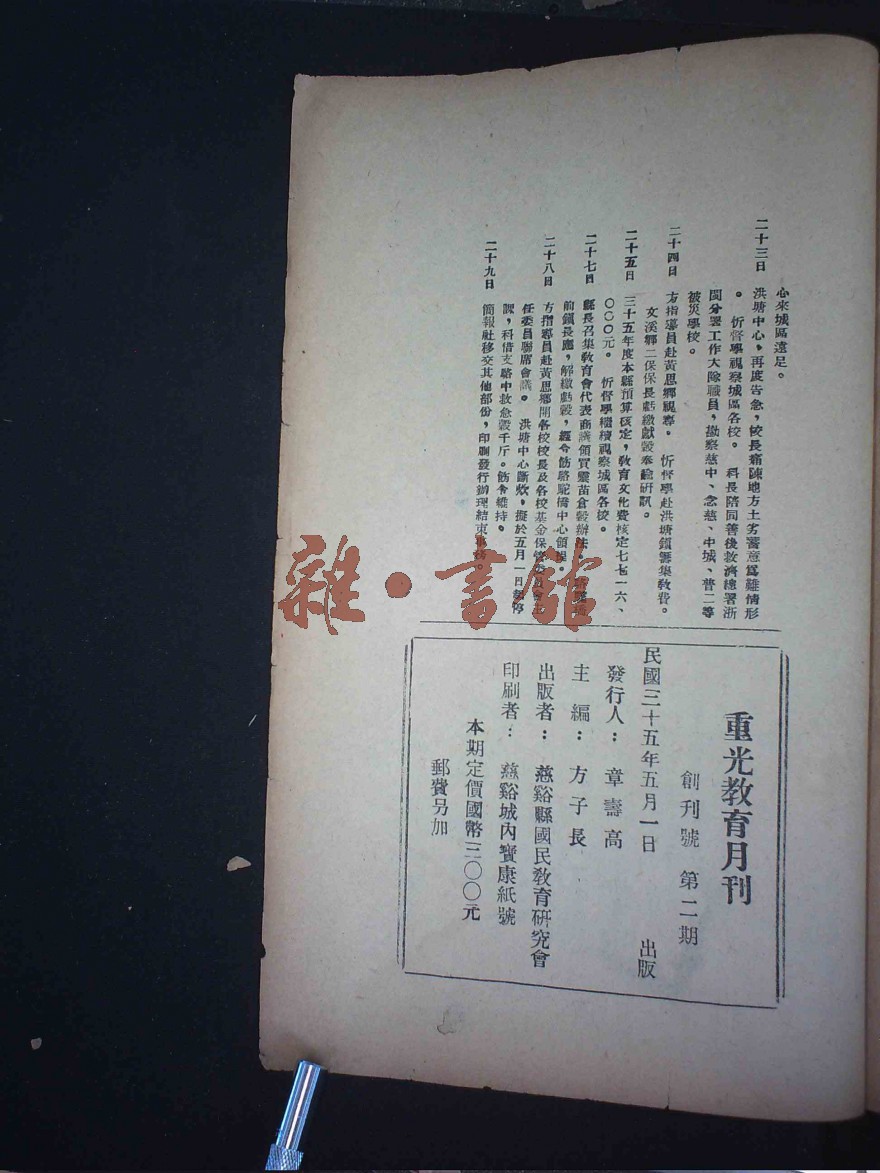 心來城區遠足。
二十三日　洪塘中心，再度告急，校長痛陳地方土劣蓄意為難情形
。　忻督學視察城區各校。　科長陪同善後救濟總署浙
閩分署工作大隊職員，勘察慈中、念慈、中城、普二等
被災學校。
二十四日　方指導員赴黃思鄉視導。　忻督學赴洪塘鎮籌集教費。
文溪鄉二保保長虧繳獻穀奉諭研訊。
二十五日　三十五年度本縣預算核定，教育文化費核定七七一六、
〇〇〇元。　忻督學繼續視察城區各校。
二十七日　縣長召集教育會代表商議領買靈苗倉穀辦法。
前鎮長應，解繳虧穀，經令飭駱駝橋中心領
二十八日　方指導員赴黃思鄉開各校校長及各校基金保管委員會主
任委員聯席會議。　洪塘中心斷炊，擬於五月一日暫停
課，科借支駱中救急穀千斤。飭令維持。
二十九日　簡報社移交其他部份，印刷發行辦理結束
重光教育月刊
創刊號　第二期
民國三十五年五月一日　出版
發行人：章壽高
主編：方子長
出版者：慈谿縣國民教育研究會
印刷者：慈谿城內寶康紙號
本期定價國幣三〇〇元
郵費另加
雜·書館